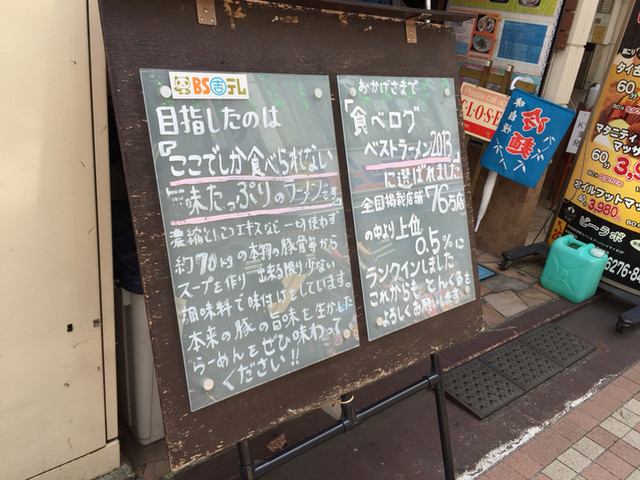 BS吉テレ
目指したのは
「ここでしか食べられない
旨味たっぷりのラーメンです」
濃縮しょうゆエキスなど一切使わず
約70kgの本物の豚骨等から
スープを作り、出来る限り少ない
調味料で味付けをしています。
本来の豚の旨味を生かした
らーめんをぜひ味わって
ください!!
おかげさまで
「食べログ
ベストラーメン2013」
に選ばれました
全国掲載店舗76万店
の中より上位
0.5%に
ランクインしました
これからも とんくるを
よろしくお願いします
CLOSE
冷麺
タイ古
60分
マタニティ
マッサ
60分
3,9
オイルフットマッ
60分 3,980円
ピーラボ
6276-84